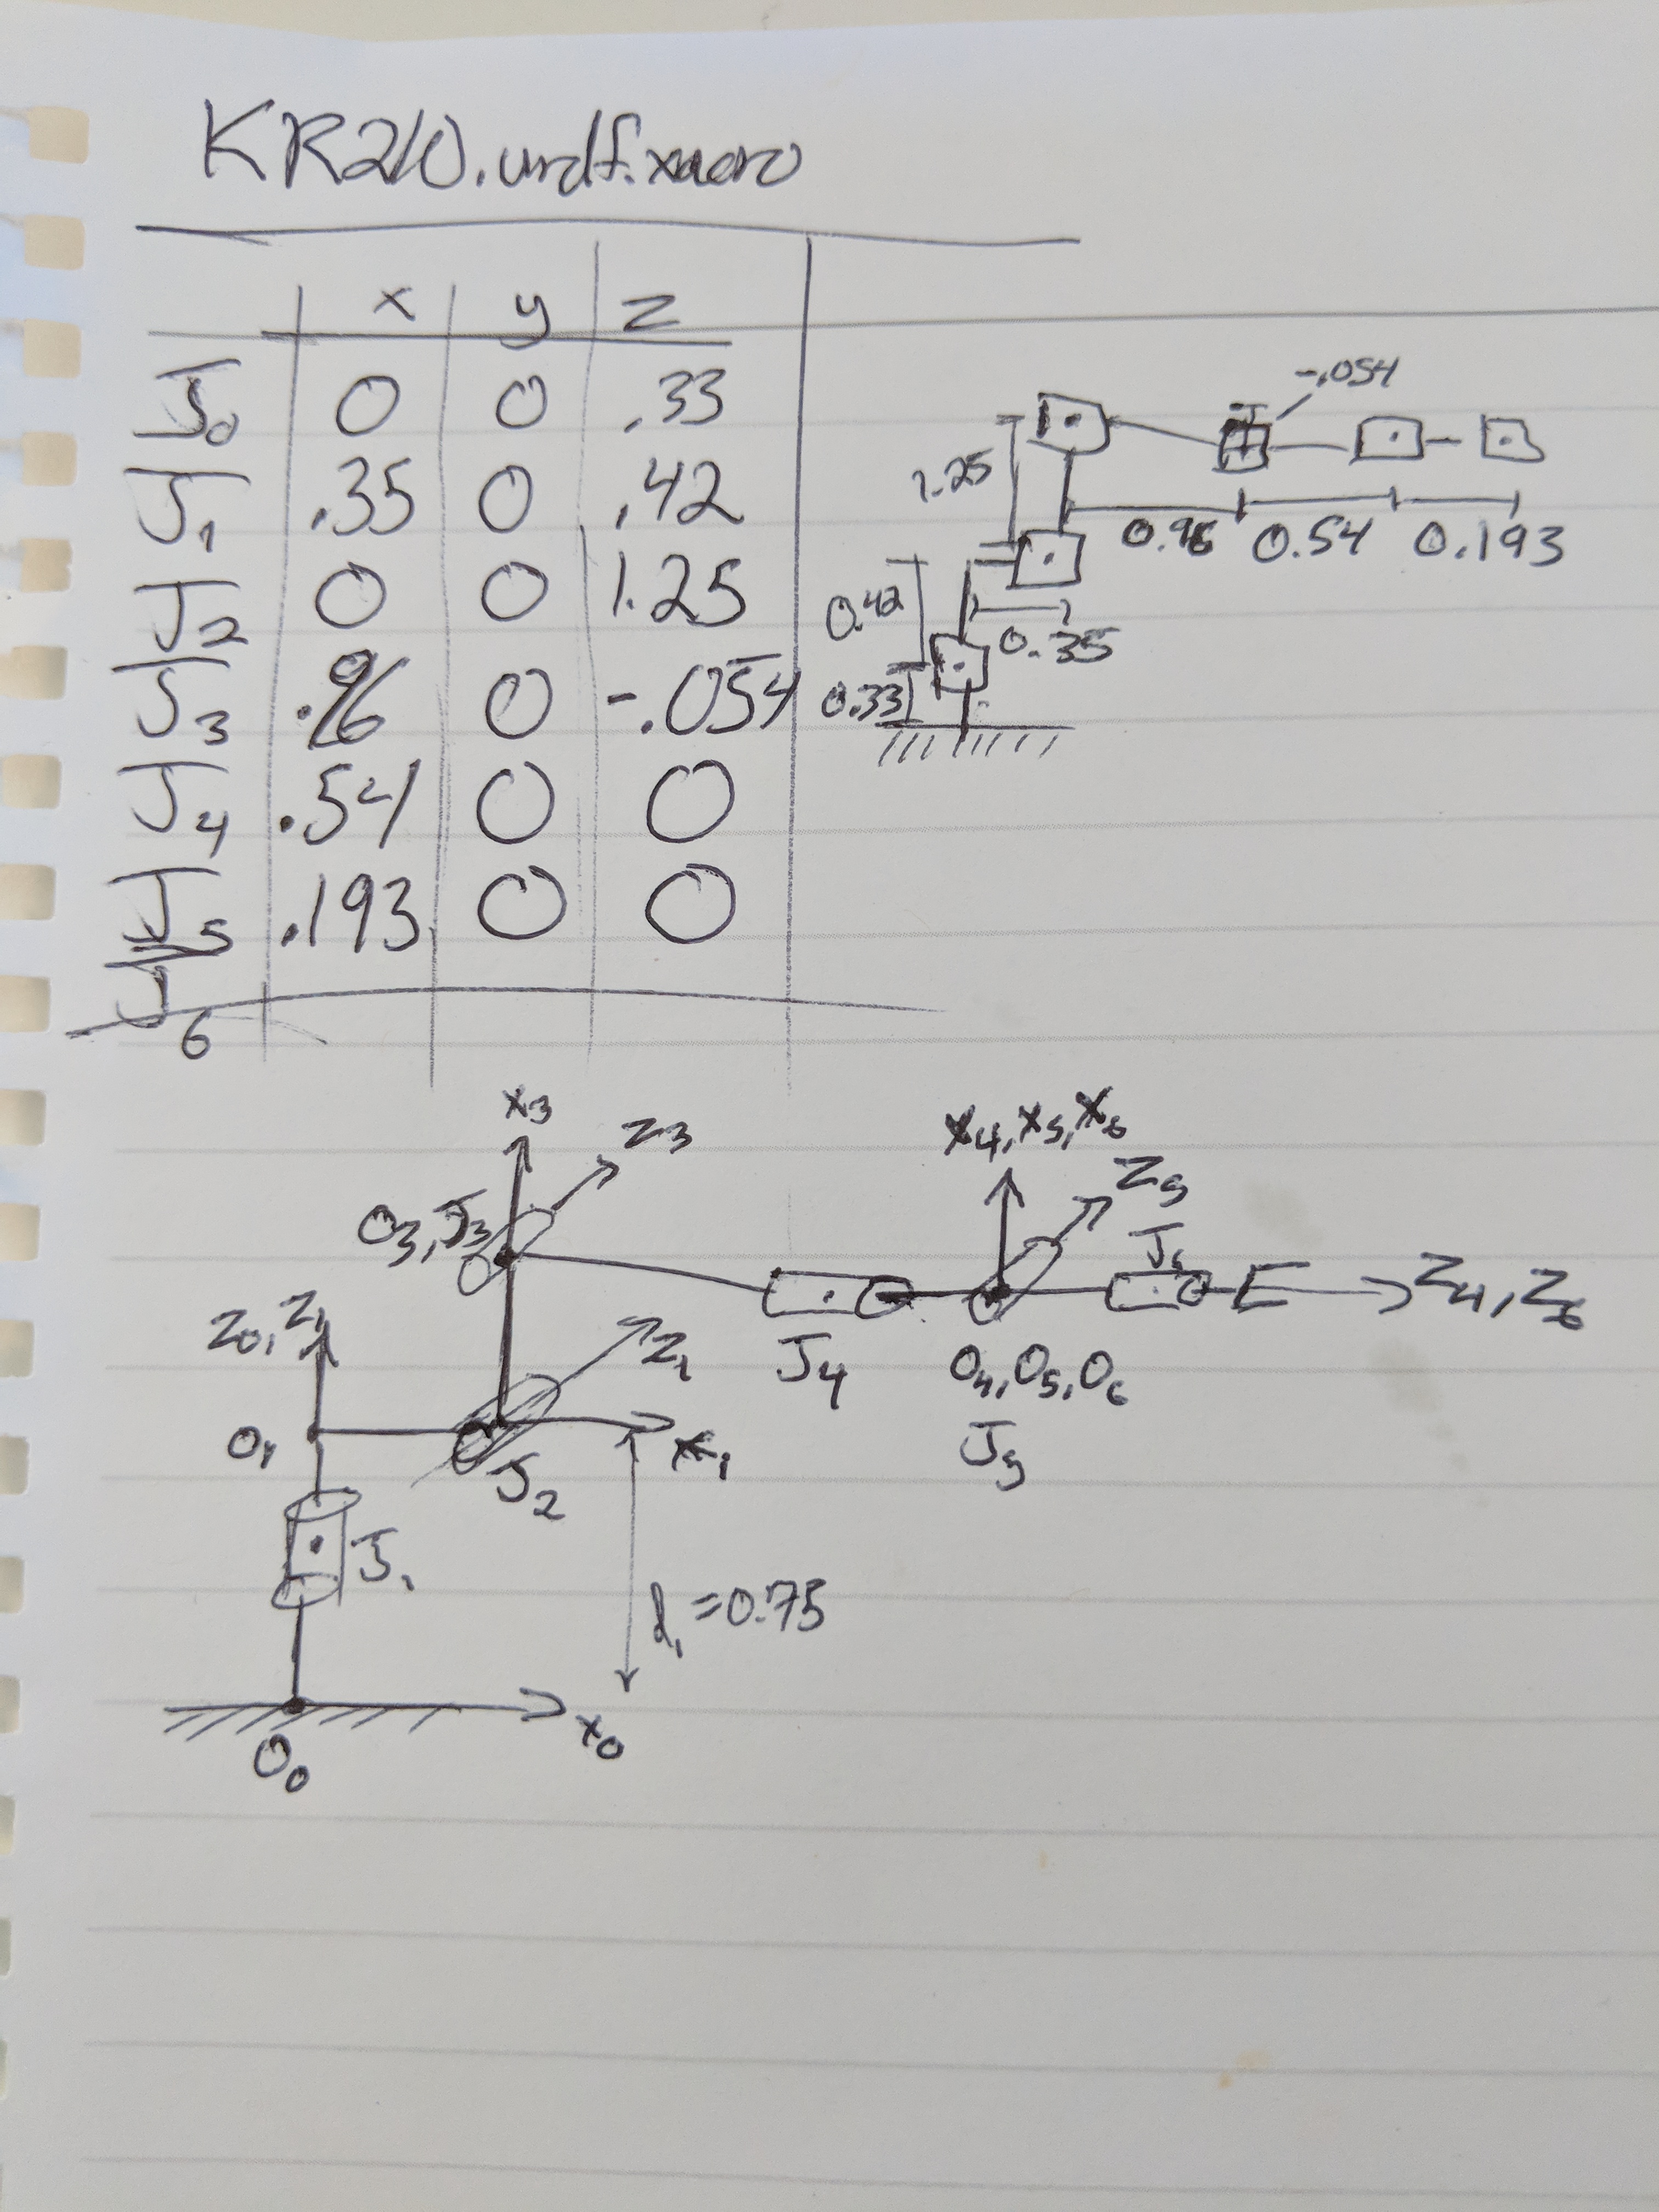 KR210.urdf.xacro
x y z
J0 0 0 .33
J1 .35 0 .42
J2 0 0 1.25
J3 .96 0 -.054
J4 .54 0 0
J5 .193 0 0
J6
-.054
1.25
0.96 0.54 0.193
0.42
0.35
0.33
x3
z3
x4, x5, x6
z5
O3, J3
J6
z4, z6
z0, z1
z1
J4
O4, O5, O6
O1
x1
J5
J2
J1
d1 = 0.75
x0
O0